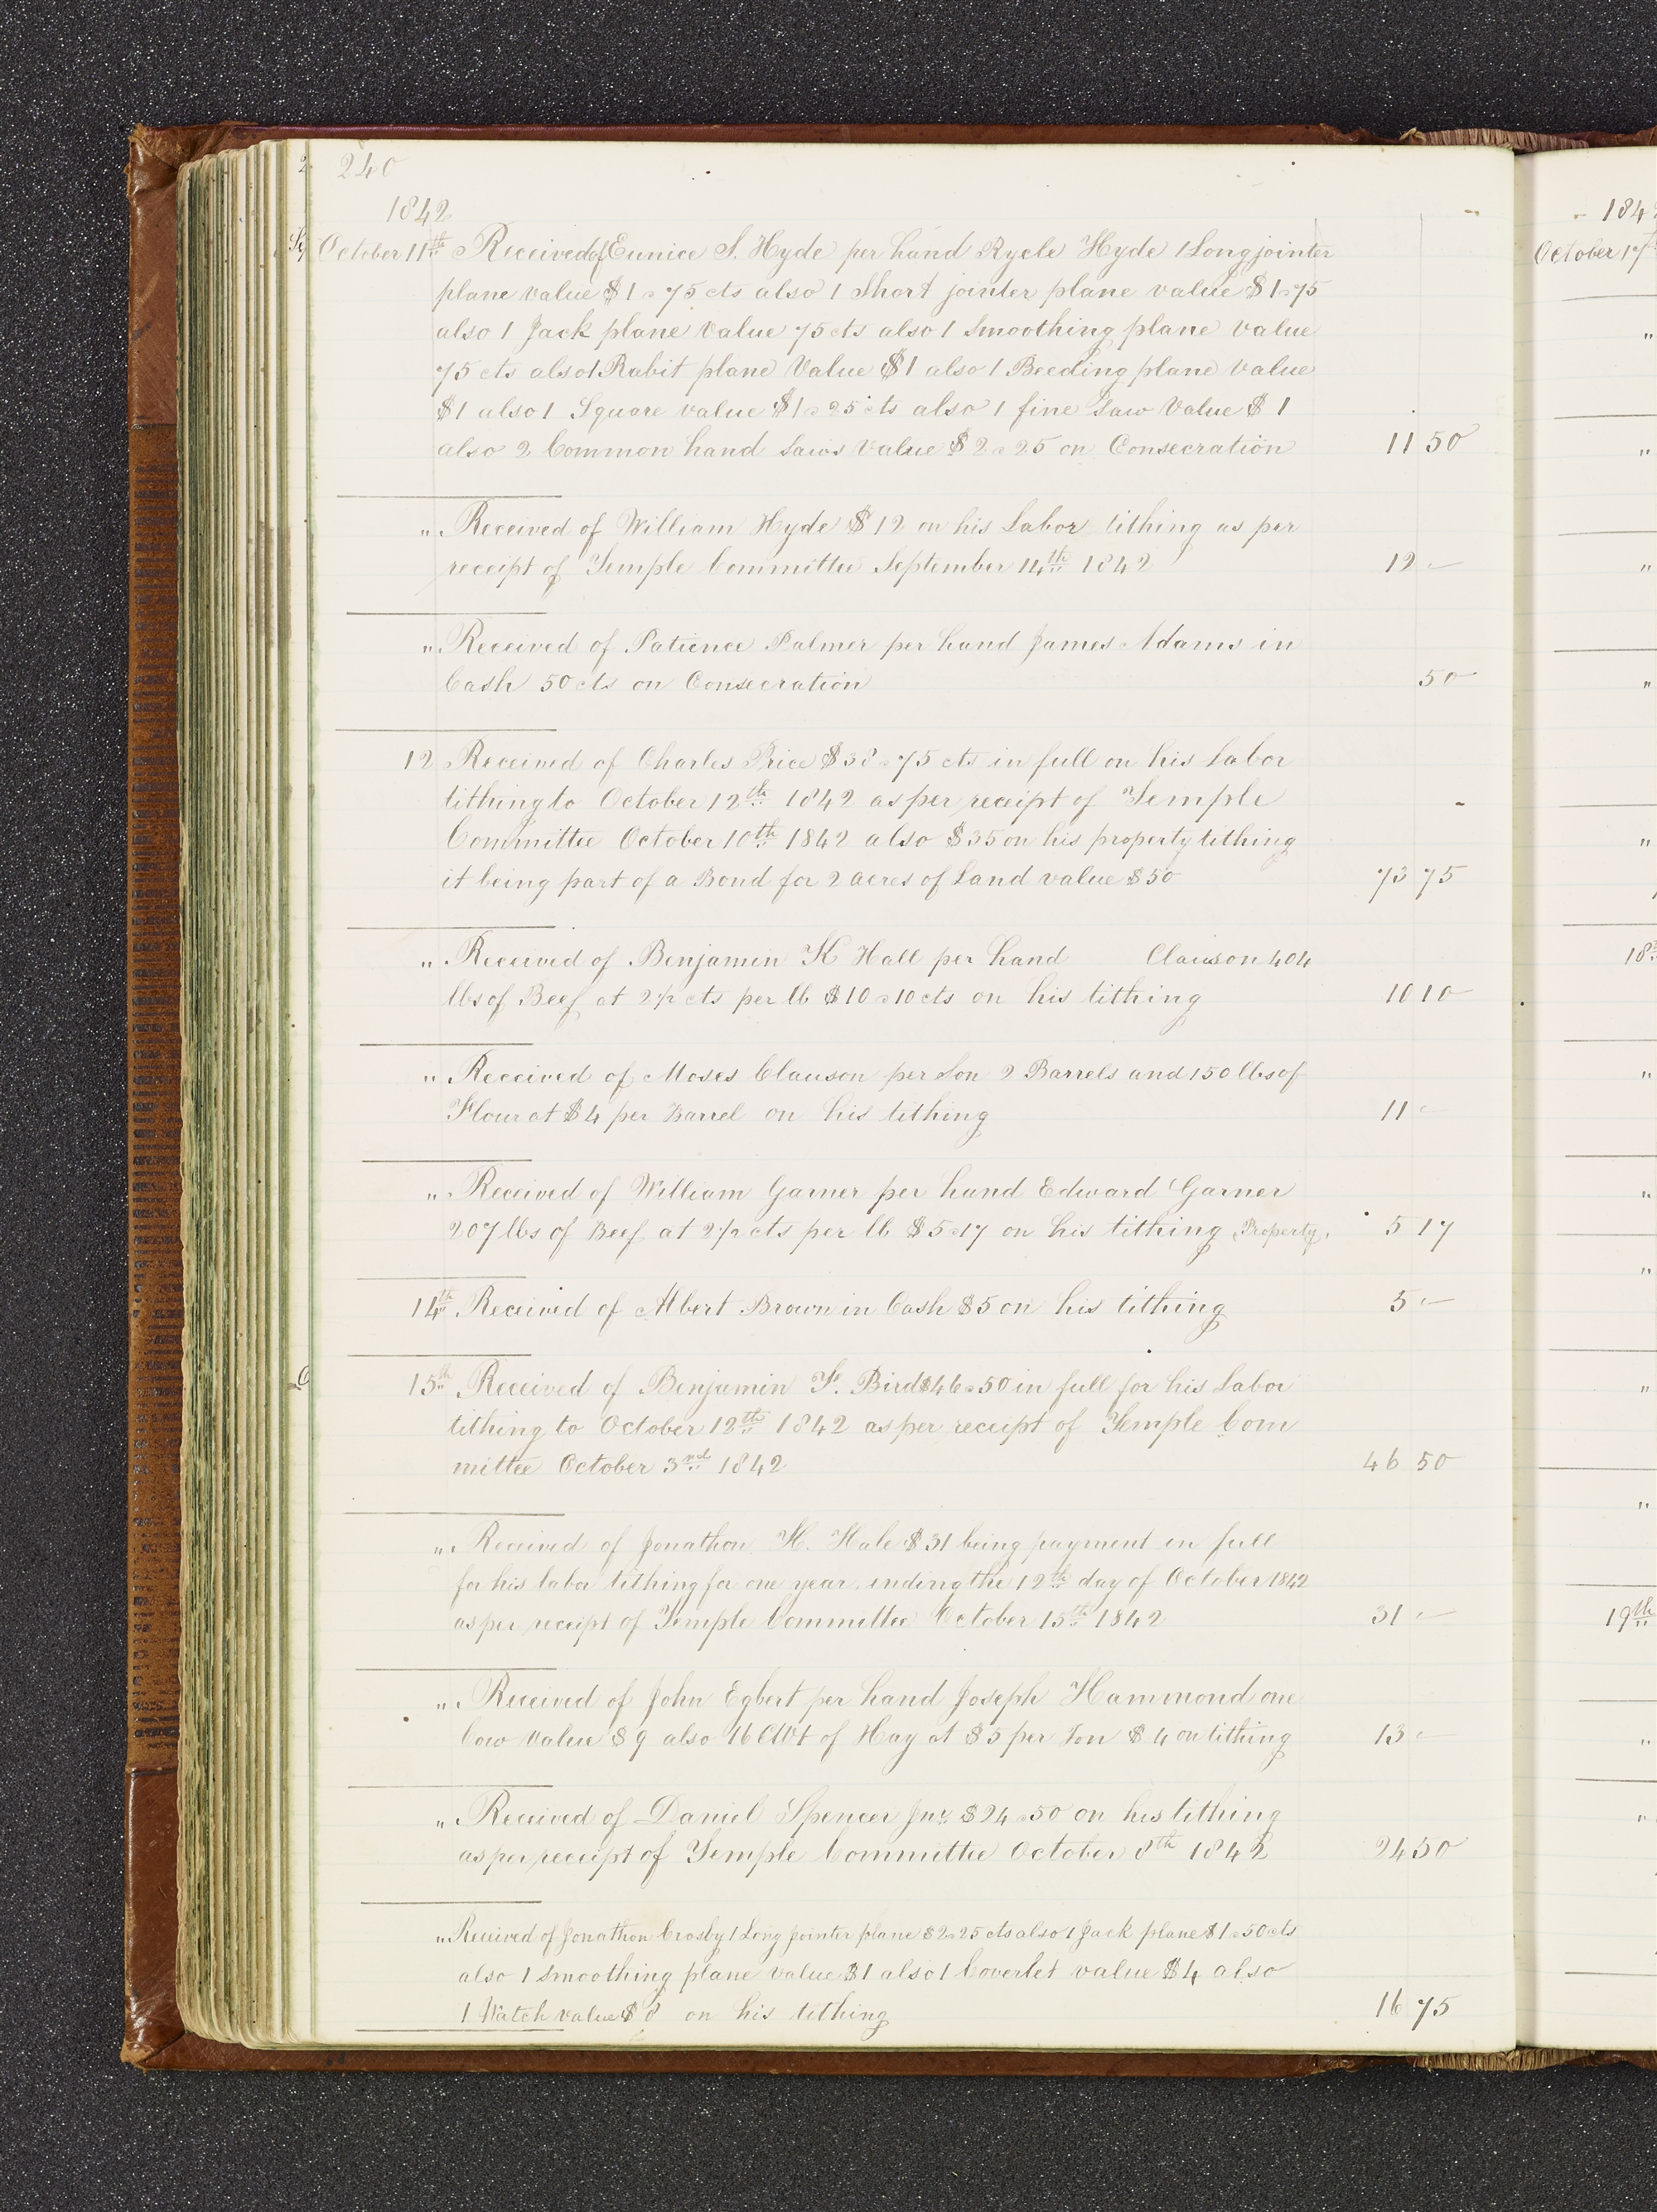 240
1842
October 11th Received of Eunice S. Hyde per hand Rycle Hyde 1 Long jointer
plane value $1.75 cts also 1 Short jointer plane value $1.75
also 1 Jack plane value 75 cts also 1 Smoothing plane value
75 cts also 1 Rabit plane Value $1 also 1 Beeding plane value
$1 also 1 Square value $1.25 cts also 1 fine Saw Value $1
also 2 Common hand Saws Value $2.25 on Consecration 11 50
" Received of William Hyde $12 on his Labor tithing as per
receipt of Temple Committee September 14th 1842 12 —
" Received of Patience Palmer per hand James Adams in
Cash 50 cts on Consecration 50
12 Received of Charles Price $38.75 cts in full on his Labor
tithing to October 12th 1842 as per receipt of Temple
Committee October 10th 1842 also $35 on his property tithing
it being part of a Bond for 2 acres of Land value $50 73 75
" Received of Benjamin K Hall per hand Clawson 404
lbs of Beef at 2 1/2 cts per lb $10.10 cts on his tithing 10 10
" Received of Moses Clauson per Son 2 Barrels and 150 lbs of
Flour at $4 per Barrel on his tithing 11 —
" Received of William Garner per hand Edward Garner
207 lbs of Beef at 2 1/2 cts per lb $5.17 on his tithing Property. 5 17
14th Received of Albert Brown in Cash $5 on his tithing 5 —
15th Received of Benjamin F. Bird $46.50 in full for his Labor
tithing to October 12th 1842 as per receipt of Temple Com
mittee October 3rd 1842 46 50
" Received of Jonathon H. Hale $31 being payment in full
for his labor tithing for one year ending the 12th day of October 1842
as per receipt of Temple Committee October 15th 1842 31 —
" Received of John Egbert per hand Joseph Hammond one
Cow Value $9 also 16 CWt of Hay at $5 per Ton $4 on tithing 13 —
" Received of Daniel Spencer Jnr $24.50 on his tithing
as per receipt of Temple Committee October 8th 1842 24 50
" Received of Jonathon Crosby 1 Long jointer plane $2.25 cts also 1 Jack plane $1.50 cts
also 1 Smoothing plane value $1 also 1 Coverlet value $4 also
1 Watch value $8 on his tithing 16 75
184
October 17
"
"
"
"
"
18
"
"
"
"
"
19th
"
"